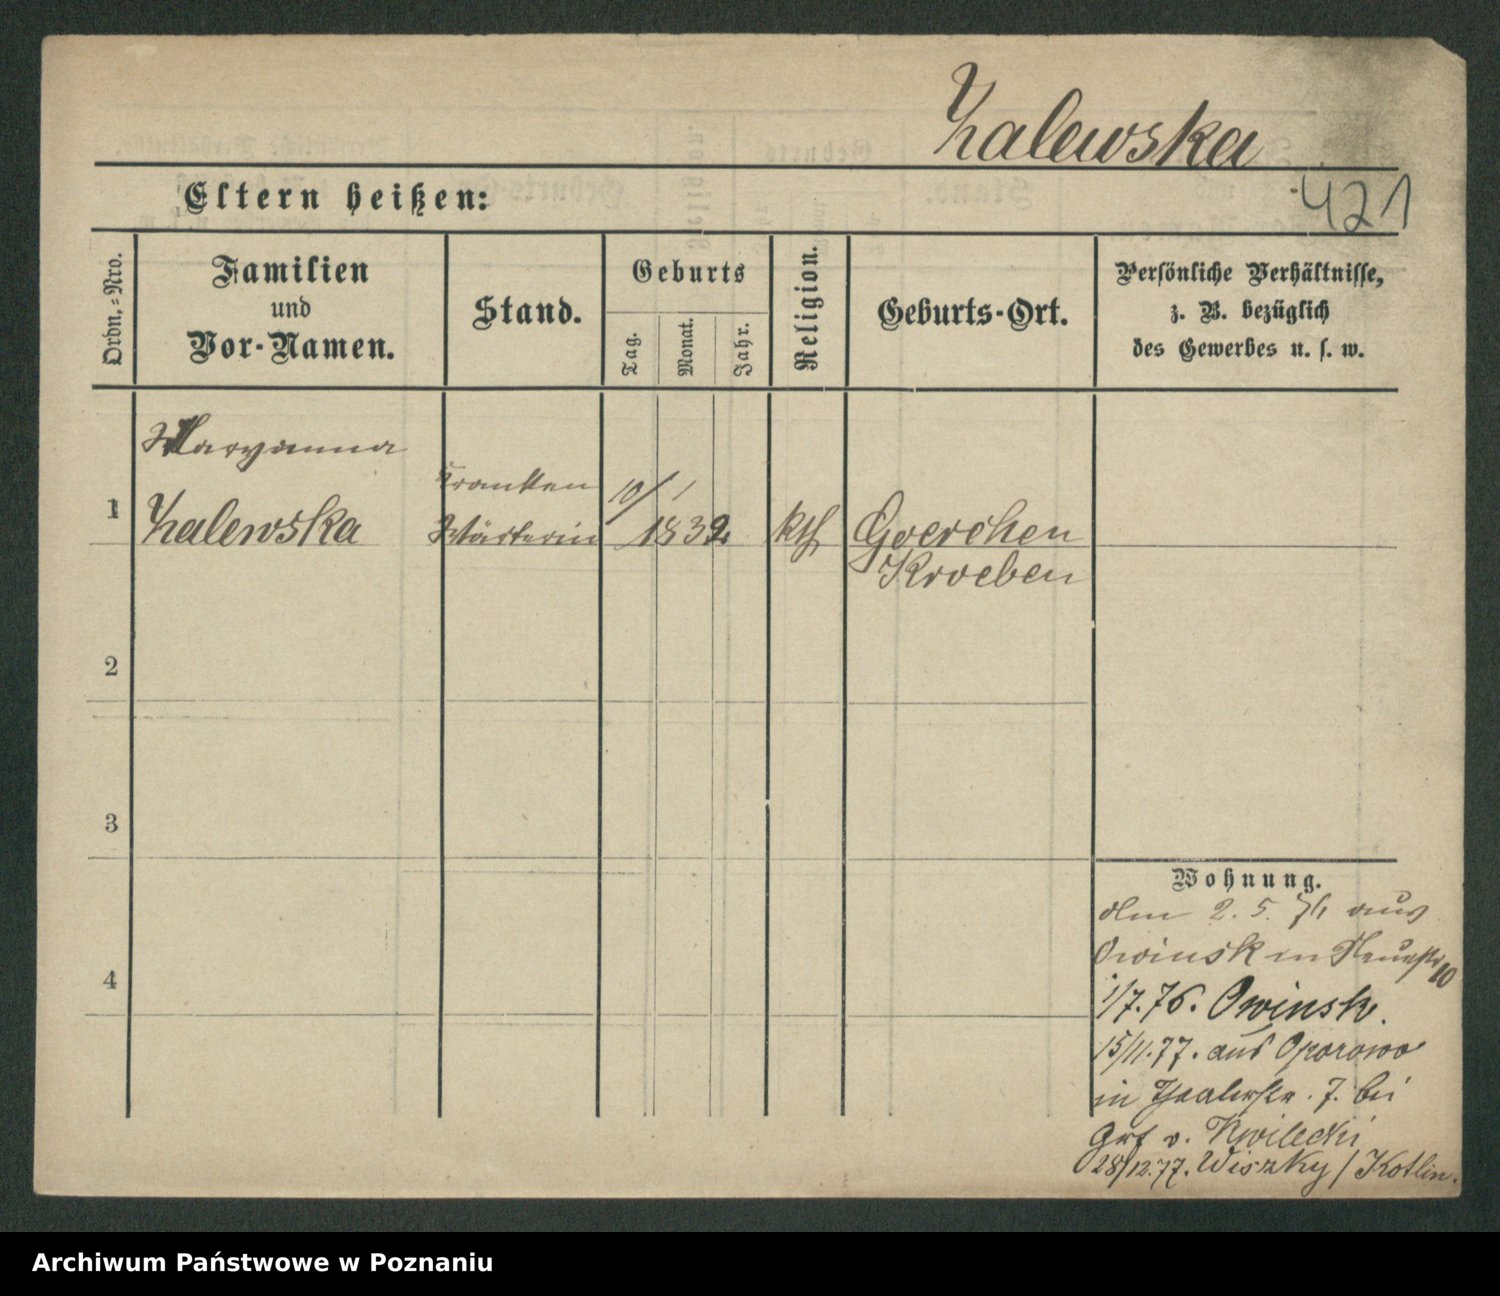 Zalewska
421
Eltern heißen:
Ordn.=Nro.
Familien
und
Vor-Namen.
Stand.
Geburts
Tag.
Monat.
Jahr.
Religion.
Geburts-Ort.
Persönliche Verhältnisse,
z. B. bezüglich
des Gewerbes u. s. w.
1
Maryanna
Zalewska
Kranken
Wärterin
10/1
1832
kth
Goerchen
Kroeben
2
3
4
Wohnung.
den 2. 5. 76 aus
Owinsk in 10
1/7.76. Owinsk.
15/11.77. aus Oporowo
in 7. bei
Grf v. Kwilecki
28/12.77. Wiszky / Kotlin.
Archiwum Państwowe w Poznaniu